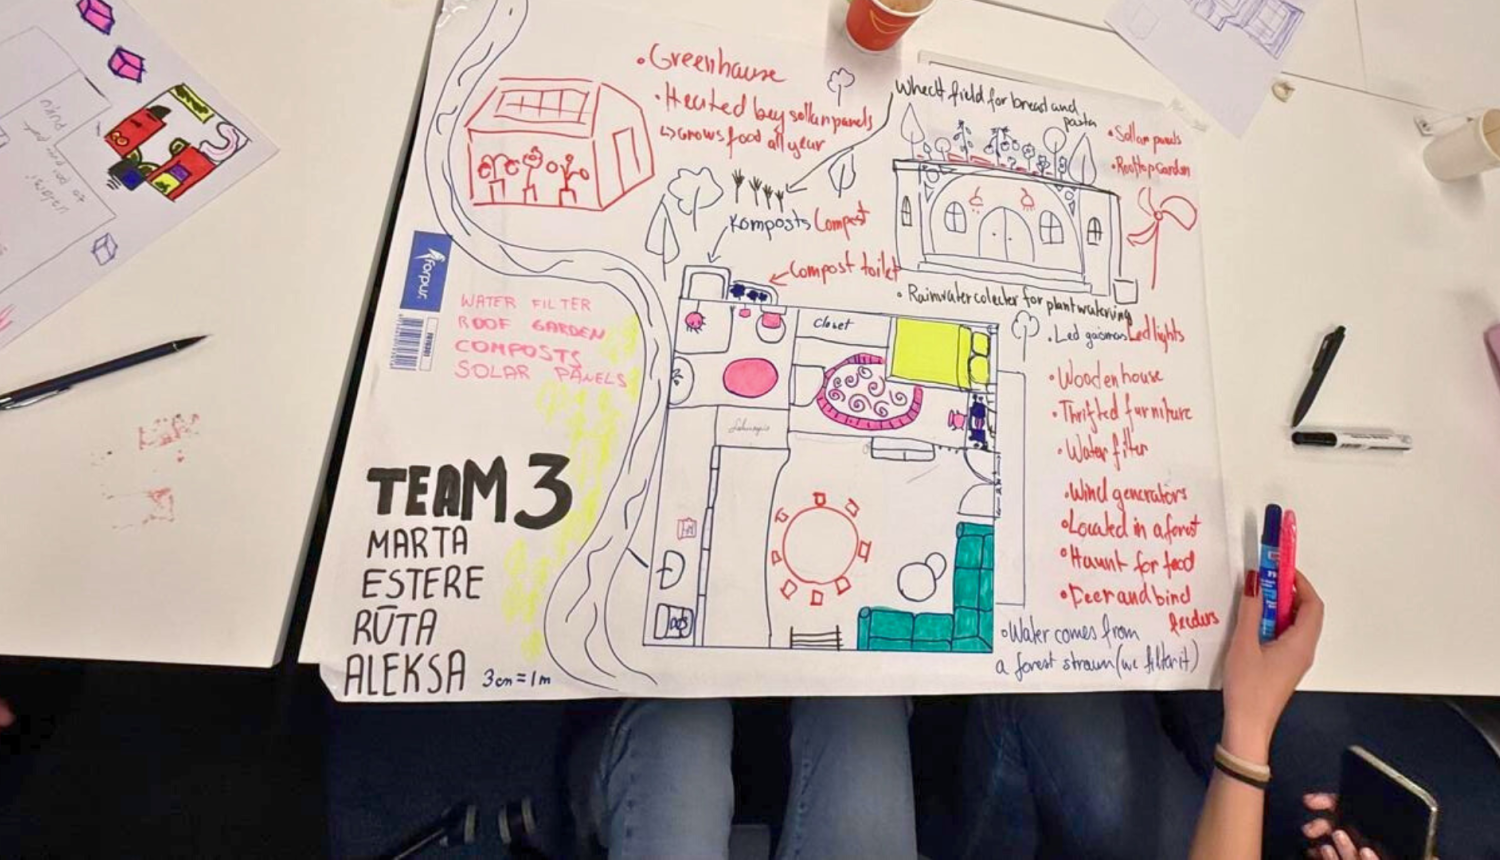 • Greenhause
• Heated bey sollar panels
↳ Grows food all year
Wheat field for bread and
pasta
• Sollar panels
• Rooftop Garden
Komposts Compest
← Compost toilet
• Rainwater colecter for plant watering
• Led gaismas Led lights
closet
farpur.
WATER FILTER
ROOF GARDEN
COMPOSTS
SOLAR PANELS
• Wooden house
• Thrifted furniture
• Water filter
• Wind generators
• Located in a forest
• Haunt for food
• Deer and bird
feeders
• Water comes from
a forest stream (we filter it)
TEAM 3
MARTA
ESTERE
RŪTA
ALEKSA
3cm = 1m